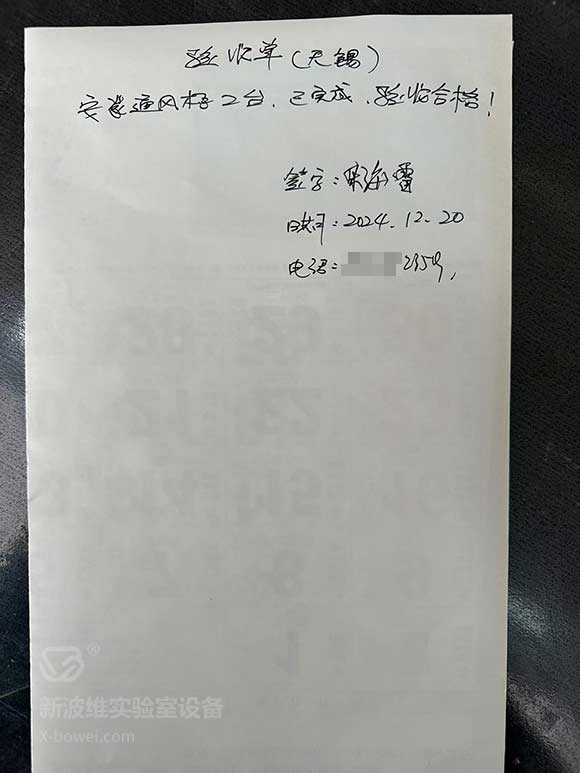 验收单(无锡)
安装通风柜2台，已完成，验收合格！
签字：
日期：2024.12.20
电话：
新波维实验室设备
x-bowei.com